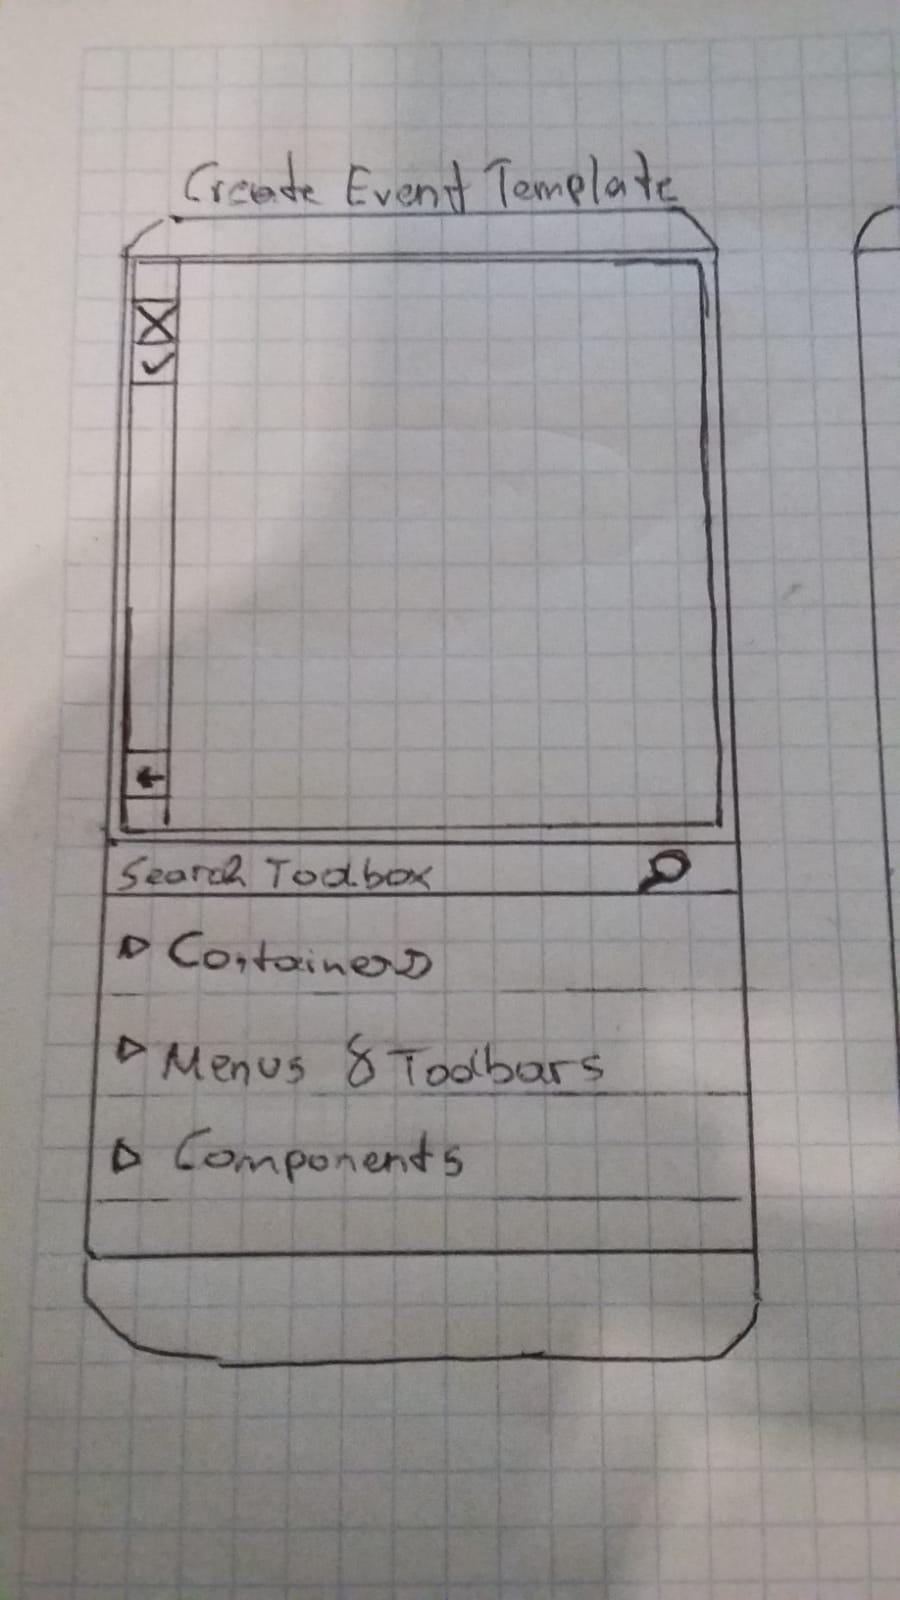 Create Event Template
Search Toolbox
Containers
Menus & Toolbars
Components